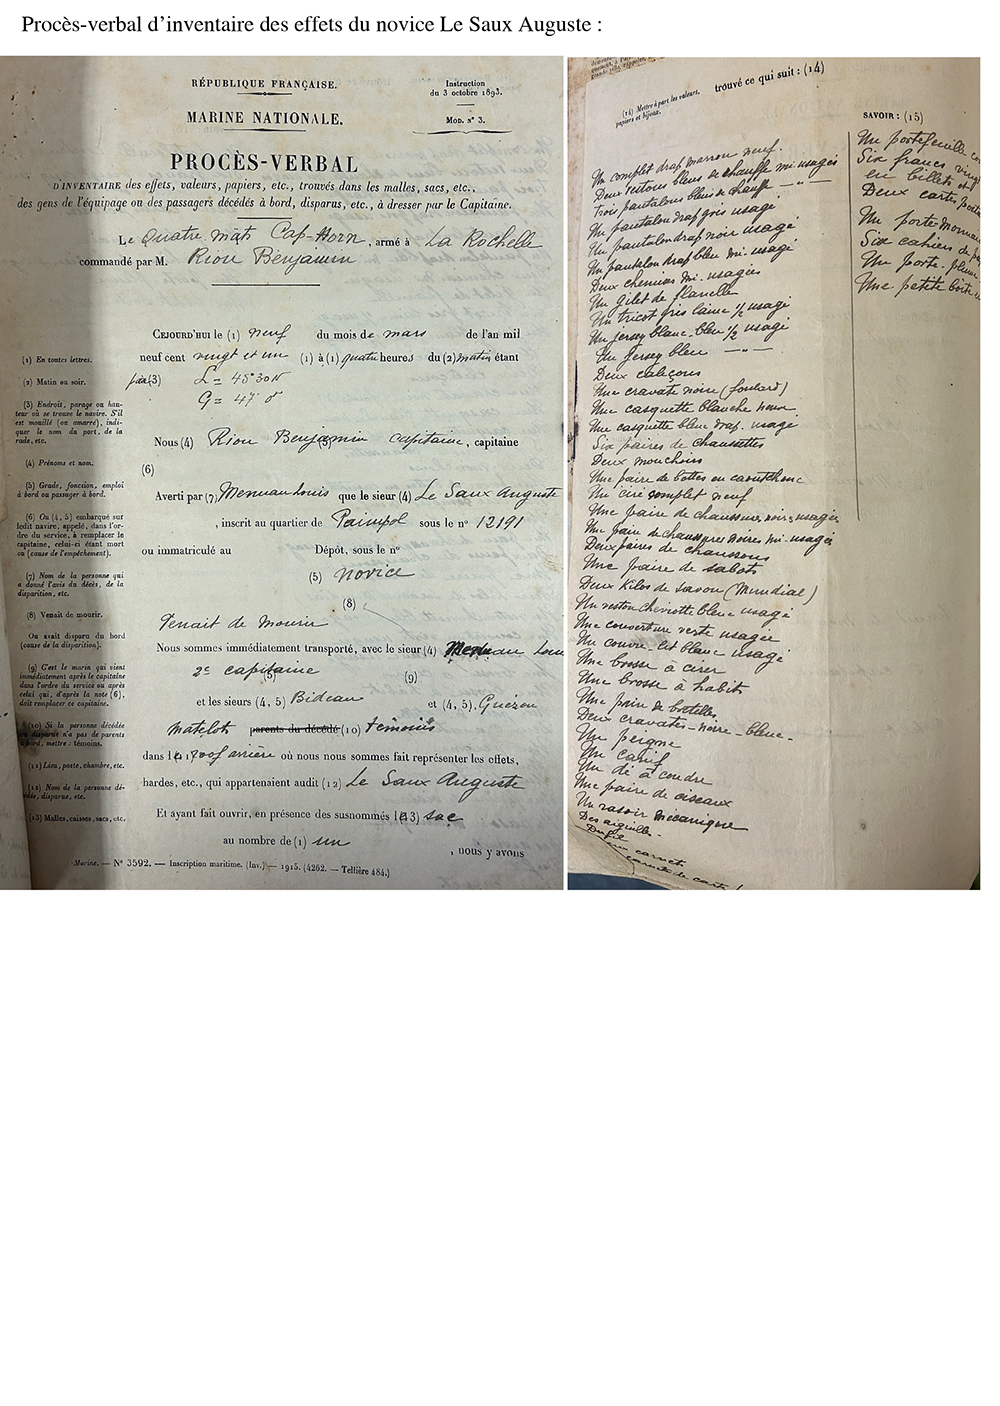 Procès-verbal d'inventaire des effets du novice Le Saux Auguste :
RÉPUBLIQUE FRANÇAISE.
MARINE NATIONALE.
Instruction
du 3 octobre 1893.
Mod. n° 3.
PROCÈS-VERBAL
D'INVENTAIRE des effets, valeurs, papiers, etc., trouvés dans les malles, sacs, etc.,
des gens de l'équipage ou des passagers décédés à bord, disparus, etc., à dresser par le Capitaine.
Le Quatre mats Cap-Horn, armé à La Rochelle
commandé par M. Riou Benjamin
Cejourd'hui le (1) neuf du mois de mars de l'an mil
neuf cent vingt et un (1) à (1) quatre heures du (2) matin étant
par (3) L = 45°30N
G = 47° 0
Nous (4) Riou Benjamin (5) capitaine, capitaine
(6)
Averti par (7) Louis que le sieur (4) Le Saux Auguste
, inscrit au quartier de Paimpol sous le n° 12191
ou immatriculé au Dépôt, sous le n°
(5) novice
(8)
Venait de mourir
Nous sommes immédiatement transporté, avec le sieur (4)
2e capitaine (5) (9)
et les sieurs (4, 5) Bideau et (4, 5), Guézou
matelots parents du décédé (10) témoins
dans l (11) roof arrière où nous nous sommes fait représenter les effets,
hardes, etc., qui appartenaient audit (12) Le Saux Auguste
Et ayant fait ouvrir, en présence des susnommés le (13) sac
au nombre de (1) un
, nous y avons
Marine. — N° 3592. — Inscription maritime. (Inv.) — 1915. (4262. — Tellière 484.)
(1) En toutes lettres.
(2) Matin ou soir.
(3) Endroit, parage ou hau-
teur où se trouve le navire. S'il
est mouillé (ou amarré), indi-
quer le nom du port, de la
rade, etc.
(4) Prénoms et nom.
(5) Grade, fonction, emploi
à bord ou passager à bord.
(6) Ou (4, 5) embarqué sur
ledit navire, appelé, dans l'or-
dre du service, à remplacer le
capitaine, celui-ci étant mort
ou (cause de l'empêchement).
(7) Nom de la personne qui
a donné l'avis du décès, de la
disparition, etc.
(8) Venait de mourir.
Ou avait disparu du bord
(cause de la disparition).
(9) C'est le marin qui vient
immédiatement après le capitaine
dans l'ordre du service ou après
celui qui, d'après la note (6),
doit remplacer ce capitaine.
(10) Si la personne décédée
ou disparue n'a pas de parents
à bord, mettre : témoins.
(11) Lieu, poste, chambre, etc.
(12) Nom de la personne dé-
cédée, disparue, etc.
(13) Malles, caisses, sacs, etc.
trouvé ce qui suit : (14)
(14) Mettre à part les valeurs,
papiers et bijoux.
Un complet drap marron neuf.
Deux vestons bleus de chauffe mi-usagés
Trois pantalons bleus de chauffe — „ —
Un pantalon drap gris usagé
Un pantalon drap noir usagé
Un pantalon drap bleu mi-usagé
Deux chemises mi-usagées
Un gilet de flanelle
Un tricot gris laine 1/2 usagé
Un jersey blanc-bleu 1/2 usagé
Un jersey bleu — „ —
Deux caleçons
Une cravate noire (foulard)
Une casquette blanche neuve
Une casquette bleu drap usagé
Six paires de chaussettes
Deux mouchoirs
Une paire de bottes en caoutchouc
Un ciré complet neuf
Une paire de chaussures noires usagées
Une paire de chaussures noires mi-usagées
Deux paires de chaussons
Une paire de sabots
Deux kilos de savon (Mundial)
Un veston cheviotte bleue usagé
Une couverture verte usagée
Un couvre-lit blanc usagé
Une brosse à cirer
Une brosse à habits
Une paire de bretelles
Deux cravates - noire - bleue -
Un peigne
Un canif
Un dé à coudre
Une paire de ciseaux
Un rasoir mécanique
Des aiguilles -
Du fil
carnet
SAVOIR : (15)
Un portefeuille
Six francs
en billets et
Deux cartes
Un porte-monnaie
Six cahiers de
Un porte-plume
Une petite boîte